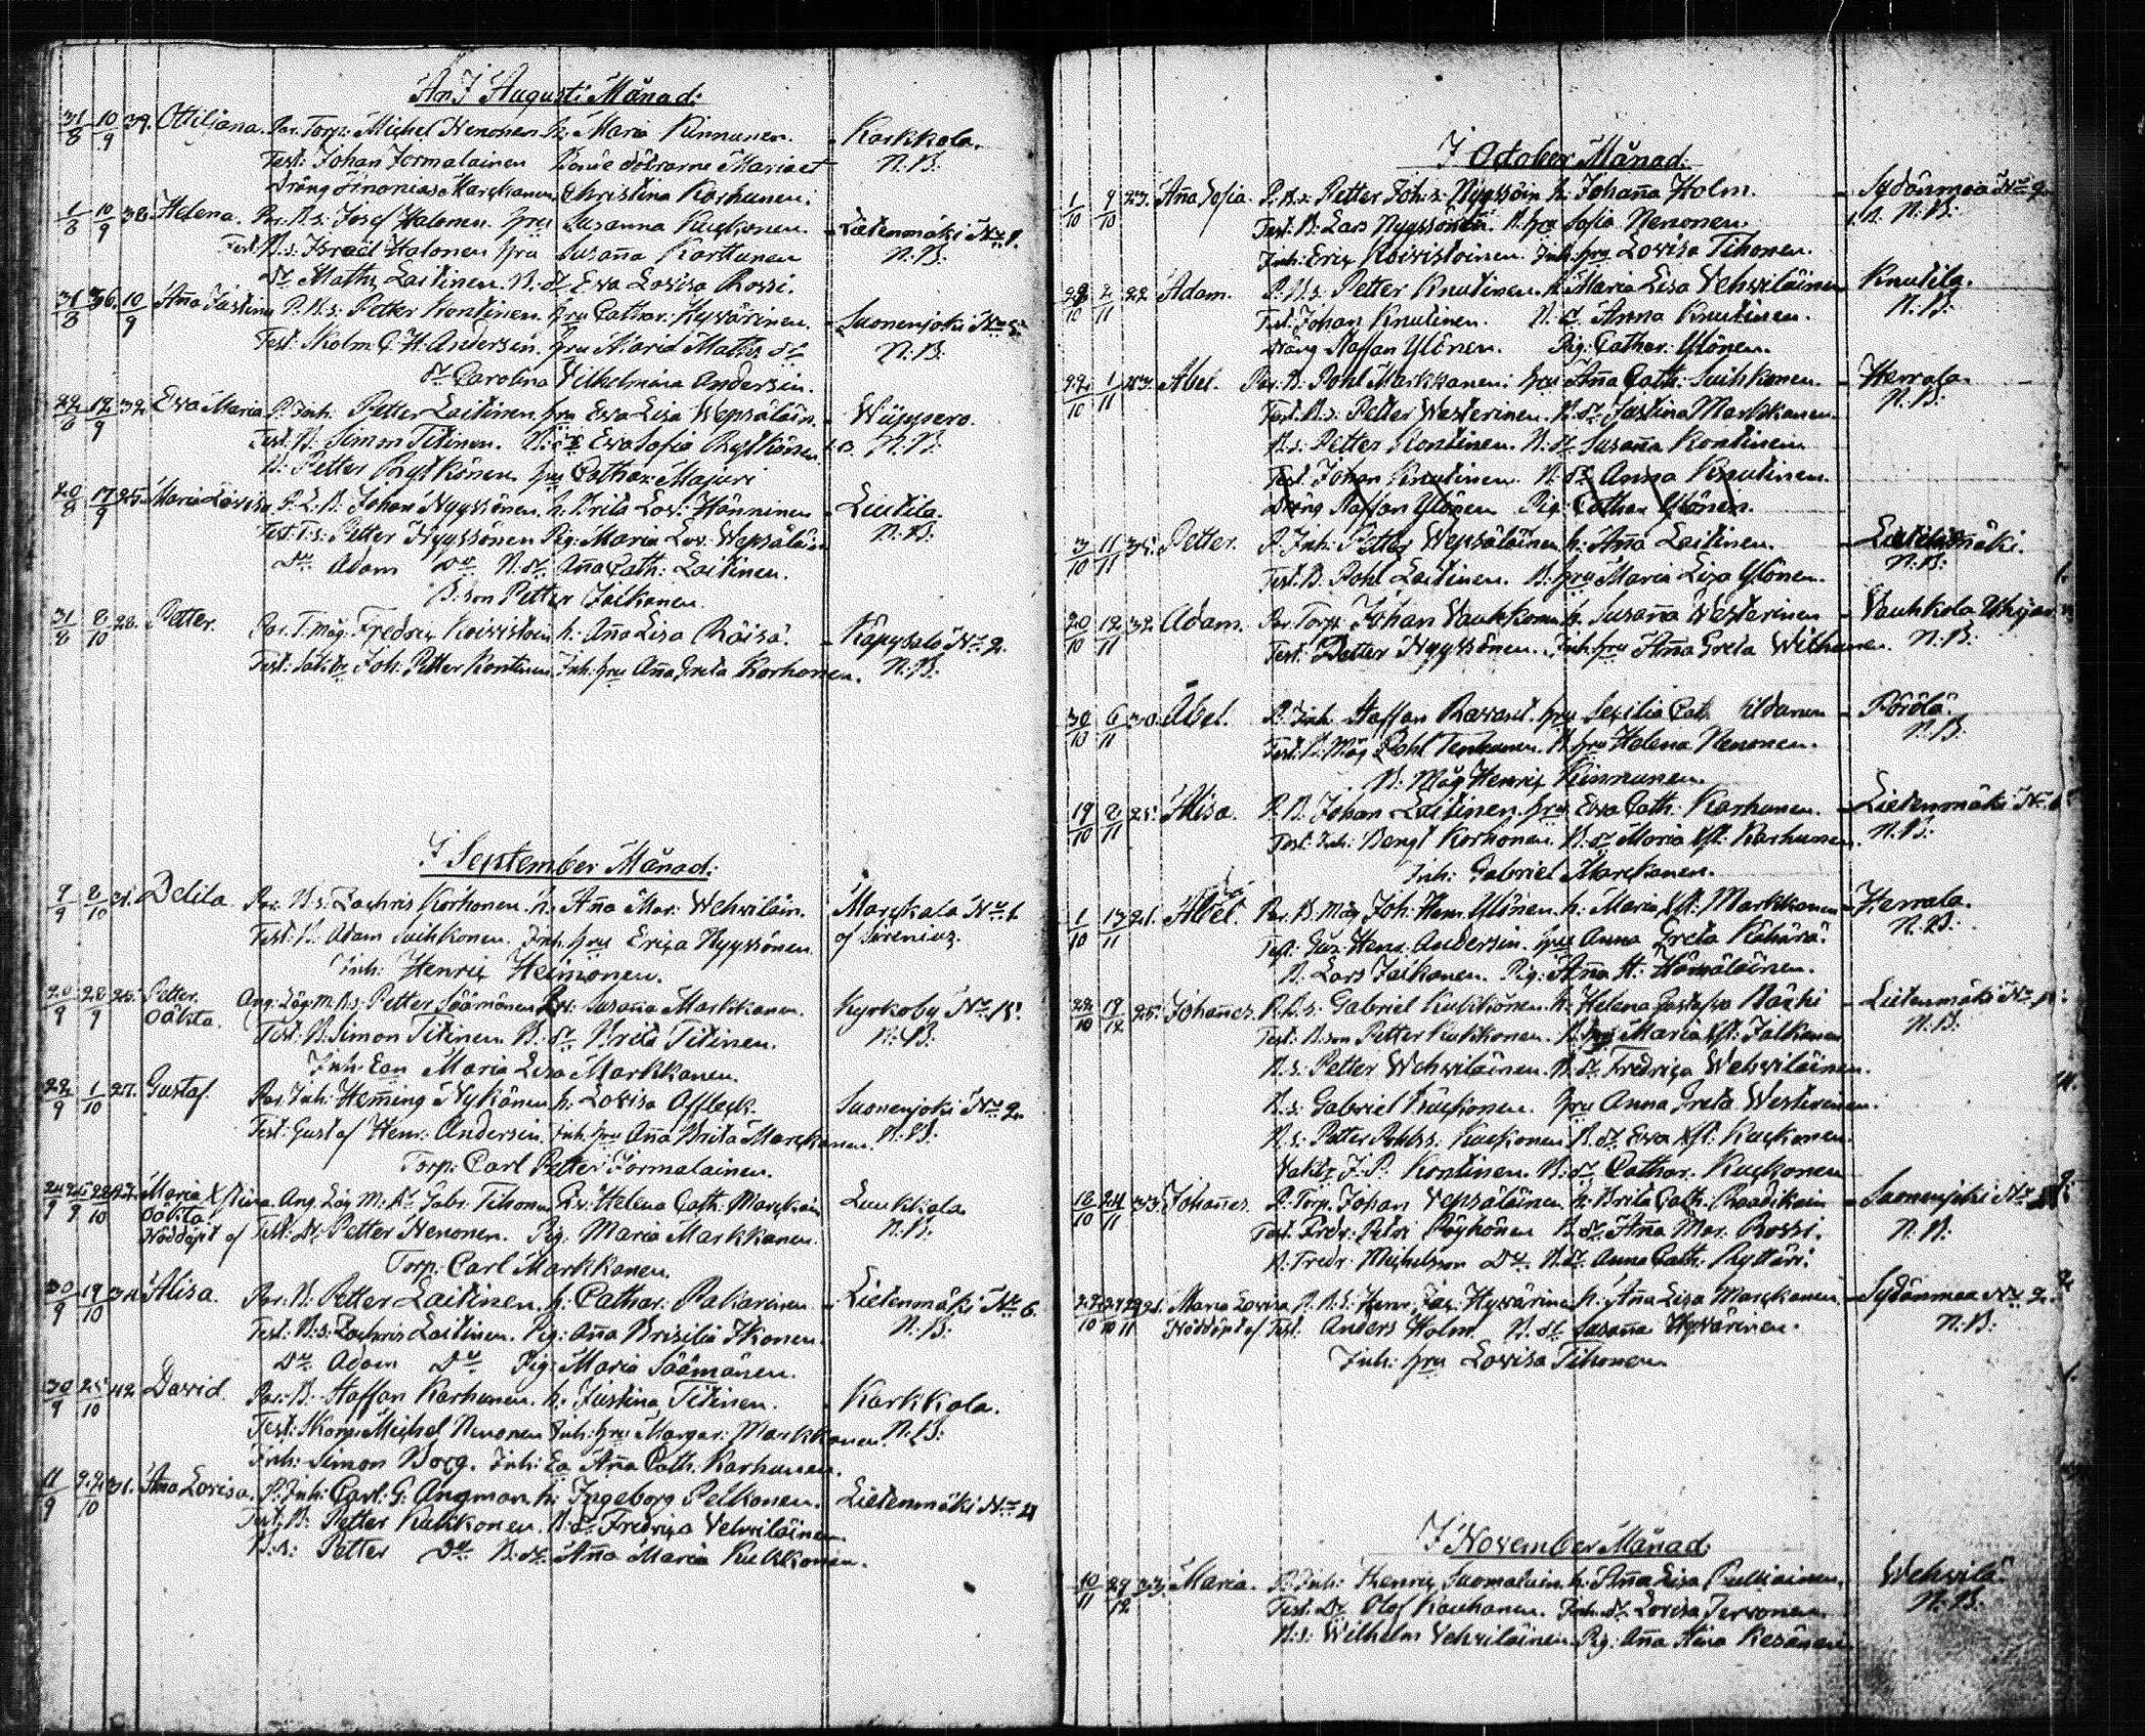 Än I Augusti Månad:
31/8 10/9 39. Ottiljana. Par. Torp: Michel Nenonen h: Maria Kinnunen. Karkkola.
Test: Johan Jormalainen Bonde döttrarne Maria et N:B:
Dräng Marckanen, Christina Korhunen.
1/8 10/9 36. Helena. Par. B.s: Josef Halonen hru Susanna Kuckonen Lietenmäki No 1.
Test: B.s. Israël Halonen hru Susaña Karttunen N:B:
Dr Maths Laitinen. B. dr Eva Lovisa Rossi.
31/8 36. 10/9 Aña Justina P. B.s: Petter Kontinen. hru Cathar: Hyvärinen. Suonenjoki No 5.
Test: Skolm. C. H. Andersin. hru Maria Maths dr N:B:
dr Carolina Vilhelmina Andersin.
22/8 12/9 32. Eva Maria P. Inh: Petter Laitinen hru Eva Lisa Wepsäläin. Wiippero.
Test. B. Simon Titinen. B: dr Eva Sofia Rytkönen N:B:
B: Petter Rytkönen hru Cathar: Majuri
20/8 17/9 25. Maria Lovisa P. L. B. Johan Nyyssönen. h: Brita Lov: Hänninen Liutila.
Test: T:s: Petter Nyyssönen Pig: Maria Lov: Wepsäläin N:B:
Do Adam Do B. dr Aña Cath: Laitinen.
B. son Petter Jalkanen.
31/8 8/10 28. Petter. Par. T. måg: Fredric Koivistoin h: Aña Lisa Räisä. Käpysalo No 2.
Test: Joh: Petter Kontinen, Inh: hru Aña Greta Korhonen. N:B:
I September Månad:
9/9 8/10 31. Delila Par. B.s: Zachris Korhonen. h: Aña Mar: Wehviläin. Marckala No 1.
Test: B: Adam Suihkonen. Inh: hru Erica Nyyssönen of Sirenius.
Inh: Henric Heimonen.
20/9 28/9 25. Petter. Ang: Läg: m. B.s: Petter Säämänen Susaña Markkanen. Kyrkoby No 18.
oäkta. Test: B: Simon Titinen. B: dr Brita Titinen. N:B:
Inh. Ean Maria Lisa Markkanen.
22/9 1/10 27. Gustaf. Par. Inh: Heming Nykänen h: Lovisa Affleck. Suonenjoki No 2.
Test: Gustaf Henr: Andersin. Inh. hru Aña Brita Marckanen. N:B:
Torp: Carl Petter Jormalainen.
Maria Xstina. Ang. Läg. M. Gabr: Tihonen Helena Cath: Marckain Luukkola
oäkta. Nöddöpt af Test: Dr Petter Nenonen. Pig: Maria Markkanen. N:B:
Torp: Carl Markkanen.
30/9 19/10 34. Alisa. Par. B. Petter Laitinen. h: Cathar: Pakarinen Lietenmäki No 6.
Test: B:s: Zachris Laitinen. Pig: Aña Brisilia Ikonen. N:B:
Do Adam Do Pig: Maria Säämänen.
30/9 25/10 42. David. Par: B. Staffan Karhunen. h: Justina Titinen. Karkkola.
Test: Michel Nenonen Inh: hru Margar: Markkanen. N:B:
Inh: Simon Borg. Inh: Ea Aña Cath: Karhunen.
11/9 22/10 31. Aña Lovisa. P. Inh: Carl: G: Angman. h: Ingeborg Pelkonen. Lietenmäki No 4
Test: B: Petter Kukkonen. B: dr Fredrica Vehviläinen
B. s: Petter Do B: dr Aña Maria Kukkonen.
I October Månad:
1/10 9/10 23. Aña Sofia. P. B.s: Petter Joh:s: Nyyssöin h: Johaña Holm. Sydänmaa No 2.
Test: B: Lars Nyyssönen. B. hru Sofia Nenonen. N:B:
Inh: Eric Koivistoinen. Inh: hru Lovisa Tihonen.
28/10 2/11 22. Adam. P. B.s: Petter Knutinen. h: Maria Lisa Vehviläinen Knutila.
Test: Johan Knutinen. B. dr Anna Knutinen. N:B:
Dräng Staffan Ylönen. Pig: Cathar: Ylönen.
22/10 1/11 Abel. Par. B. Pohl Markkanen: hru Aña Cath: Suihkonen. Herrala.
Test. B.s: Petter Westerinen. B. dr Justina Markkanen. N:B:
B.s: Petter Kontinen. B: dr Susaña Kontinen
Test Johan Knutinen. B. dr Anna Knutinen.
Dräng Staffan Ylönen Pig: Cathar Ylönen.
3/10 11/11 35. Petter. P. Inh: Petter Wepsäläinen h: Aña Laitinen. Lietenmäki.
Test: B: Pohl Laitinen. B: hru Maria Lisa Ylönen. N:B:
20/10 12/11 32. Adam. Par Torp: Johan Vauhkonen h. Susaña Westerinen Vauhkola
Test. Petter Nyyssönen. Inh: hru Aña Greta Withunen. N:B:
30/10 6/11 30. Abel. P. Inh Staffan Ravast. hru Secilia Cath. Ildanen Pörölä.
Test. B: Måg Pohl Tenhunen. B. hru Helena Nenonen. N:B:
B. Måg Henric Kinnunen.
19/10 8/11 25. Alisa. P. B. Johan Laitinen. hru Eva Cath: Karhunen. Lietenmäki No 6
Test: Inh: Bengt Korhonen. B: dr Maria Xst: Karhunen. N:B:
Inh: Gabriel Marckanen.
1/10 13/11 21. Abel. Par. B. måg Joh: Henr. Ylönen. h: Maria Xst: Markkanen Herrala.
Test: Gus: Henr: Andersin. hru Anna Greta Kähärä. N:B:
B. Lars Jalkanen. Pig: Aña H: Hämäläinen.
28/10 19/12 25. Johañes. P. B.s: Gabriel Kukkonen. h: Helena Gustafva Bäcki Lietenmäki No
Test: B. son Petter Kukkonen. B. hru Maria Xst: Jalkanen N:B:
B. s: Petter Wehviläinen. B. dr Fredrica Wehviläinen.
B. s: Gabriel Kuckonen. hru Anna Greta Westerinen.
B. s: Petter Pohls s. Kuckonen. B. dr Eva Xst: Kuckonen.
J. P. Kontinen. B: dr Cathar: Kuckonen
12/10 24/11 33. Johañes. P. Torp. Johan Vepsäläinen h: Brita Cath: Raatikain Suonenjoki No
Test: Fredr: Petri Pöyhönen B. dr Aña Mar: Rossi. N:B:
B. Fredr: Michelsson Do B. dr Anna Cath: Ryttäri.
Maria Lovisa P. B.s: Henr: Jac: Hyvärinen h: Aña Lisa Marckanen. Sydänmaa No 2.
Nöddöpt af Test: Anders Holm. B. dr Susaña Hyvärinen. N:B:
Inh: hru Lovisa Tihonen
I November Månad:
10/11 29/12 33. Maria. P. Inh: Henric Suomalain. h: Aña Lisa Pulliainen. Wehvilä.
Test. Dr Olof Kauhanen. Inh. dr Lovisa Tervonen. N:B:
B:s: Wilhelm Vehviläinen. Pig: Aña Stina Kesänen